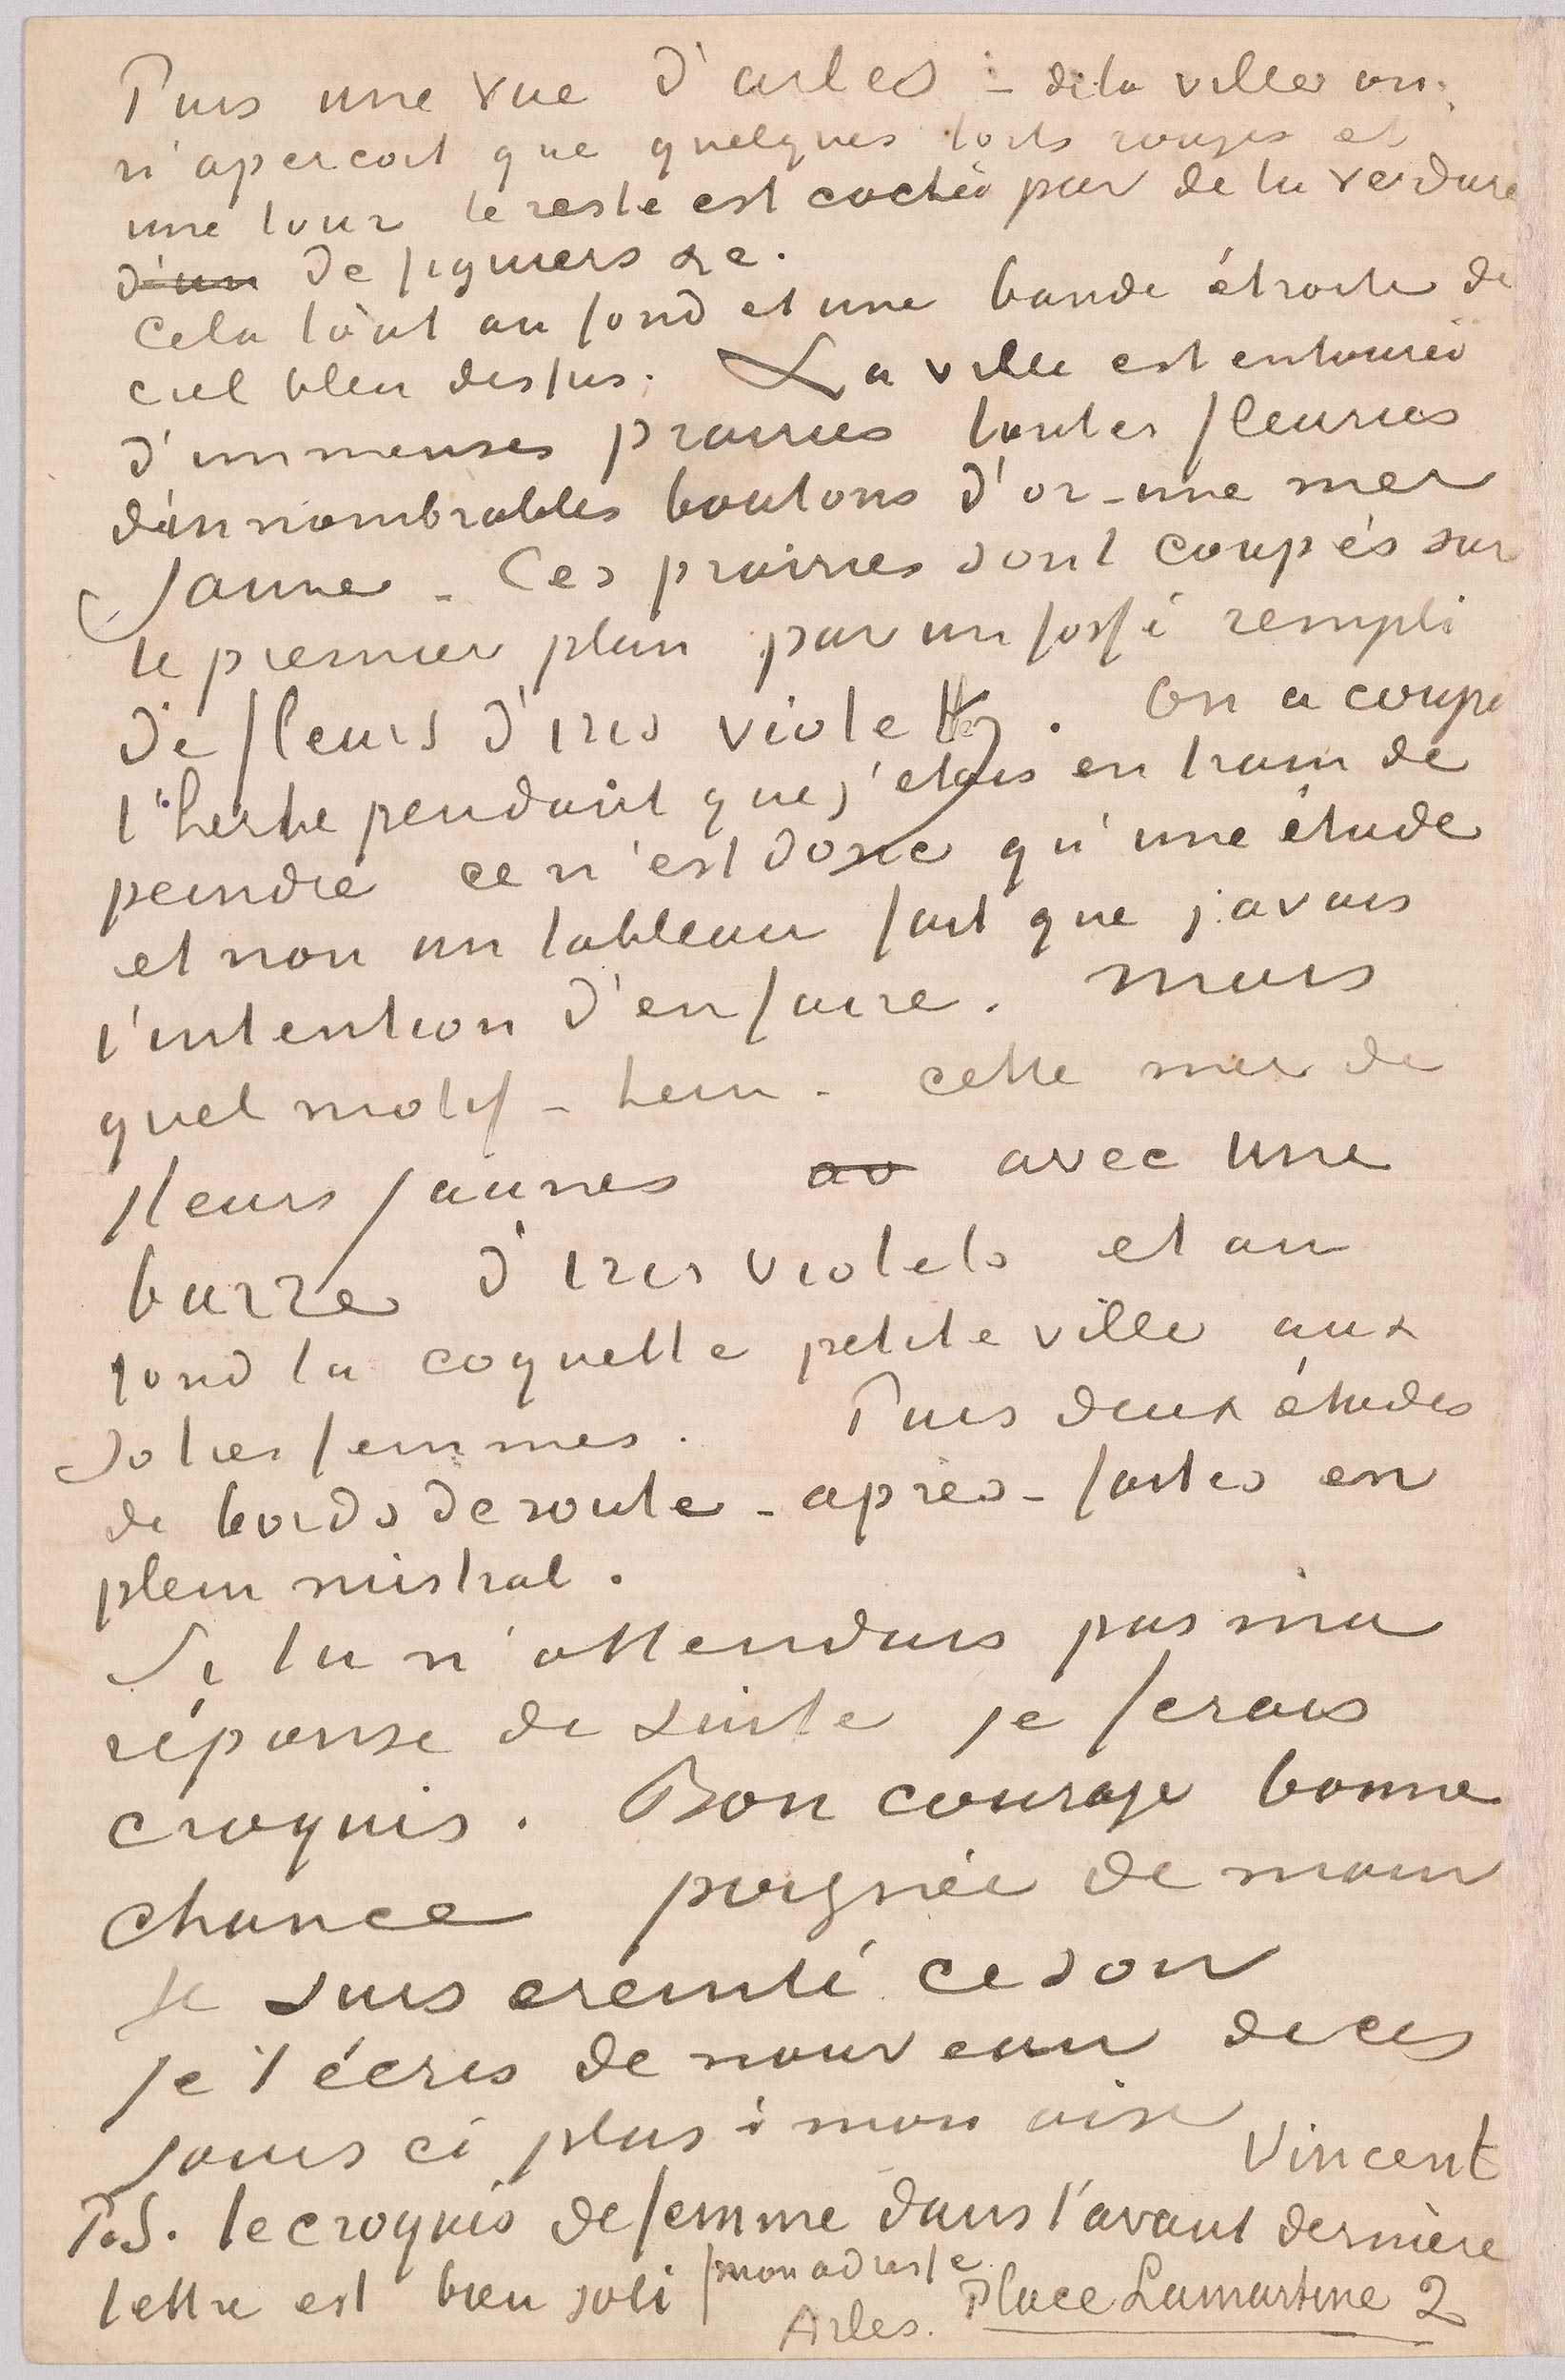 Puis une vue d'arles – de la ville on
n'apercoit que quelques toits rouges et
une tour le reste est caché par de la verdure
d'un de figuiers &c.
Cela tout au fond et une bande étroite de
ciel bleu dessus. La ville est entourée
d'immenses prairies toutes fleuries
d'innombrables boutons d'or – une mer
jaune – Ces prairies sont coupés sur
le premier plan par un fossé rempli
de fleurs d'iris violets. On a coupé
l'herbe pendant que j'etais en train de
peindre ce n'est donc qu'une étude
et non un tableau fait que j'avais
l'intention d'en faire. Mais
quel motif – hein – cette mer de
fleurs jaunes av avec une
barre d'iris violets et au
fond la coquette petite ville aux
jolies femmes. Puis deux études
de bords de route – après – faites en
plein mistral.
Si tu n'attendais pas ma
réponse de suite je ferais
croquis. Bon courage bonne
chance poignée de main
Je suis ereinté ce soir
je t'écris de nouveau de ces
jours ci plus à mon aise Vincent
P.S. le croquis de femme dans l'avant dernière
lettre est bien joli / mon adresse
Arles. Place Lamartine 2